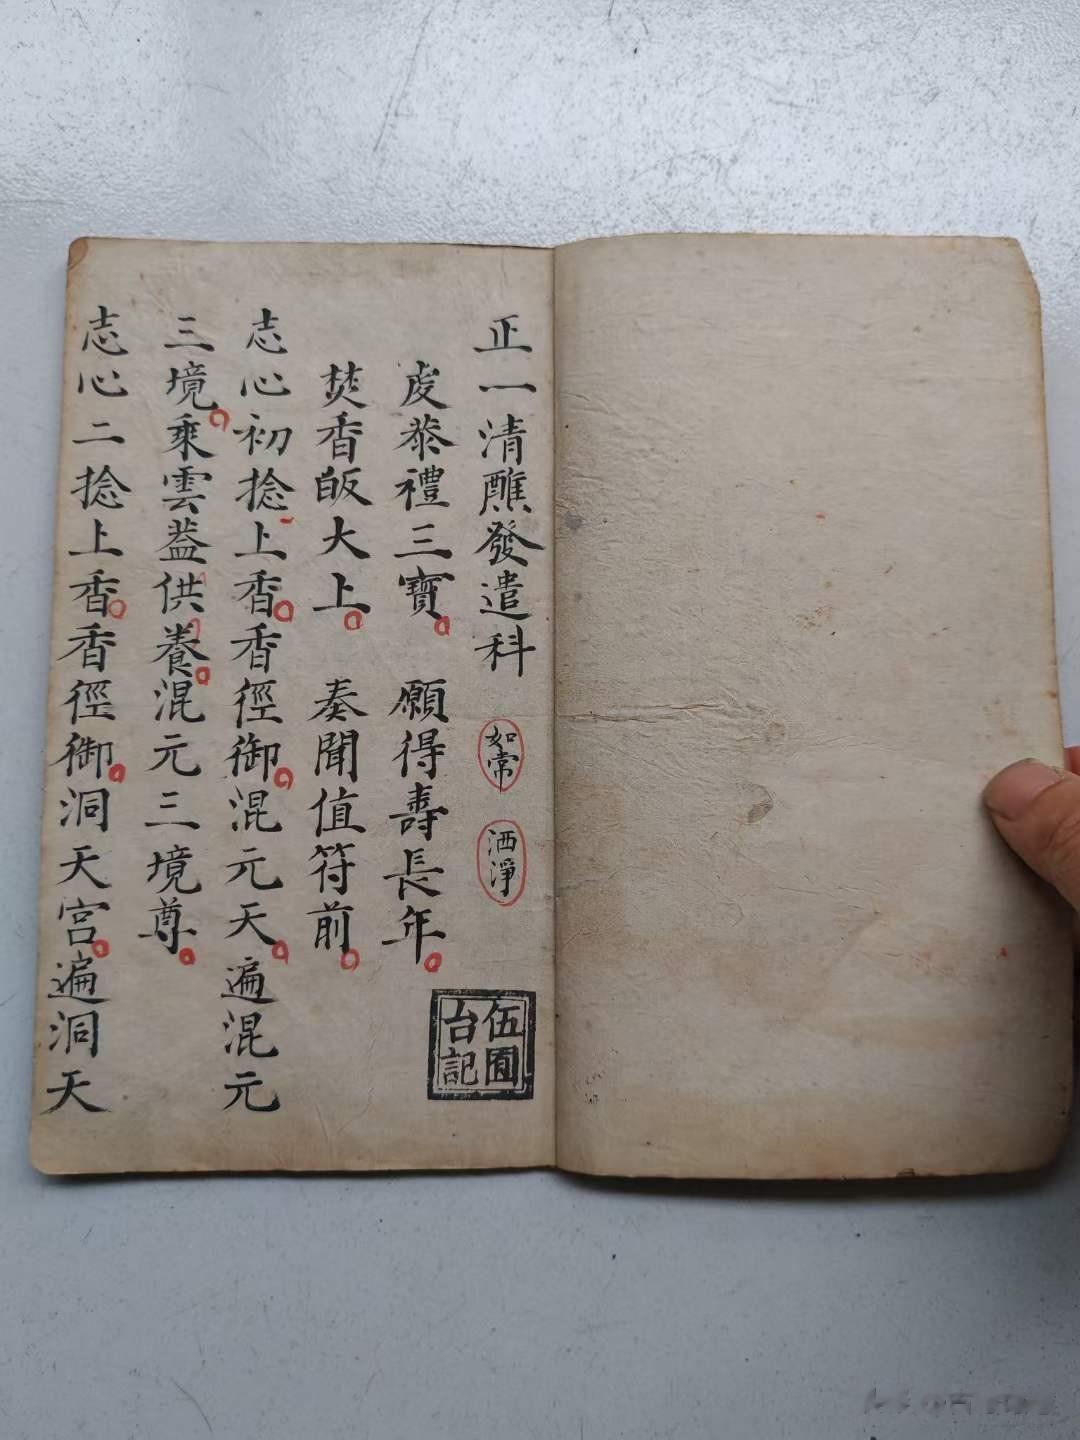 正一清醮發遣科 如常 洒淨
虔恭禮三寶 願得壽長年
焚香皈大上 奏聞值符前
志心初捻上香香徑御混元天遍混元
三境乘雲蓋供養混元三境尊
志心二捻上香香徑御洞天宮遍洞天
伍囿
台記